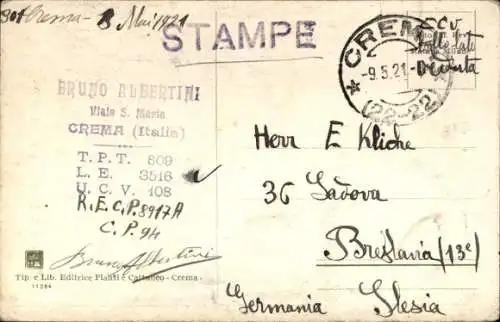 Crema - 8 Mai 1921
STAMPE
CREMA
- 9.5.21.-
(22-22)
BRUNO ALBERTINI
Viale S. Maria
CREMA (Italia)
T. P. T. 809
L. E. 3516
U. C. V. 108
R.E.C.P. 8917A
C.P. 94
Bruno Albertini
Tip. e Lib. Editrice Plausi e Cattaneo - Crema -
11284
Herr E Kliche
36 Sadova
Breslavia (13e)
Germania Slesia